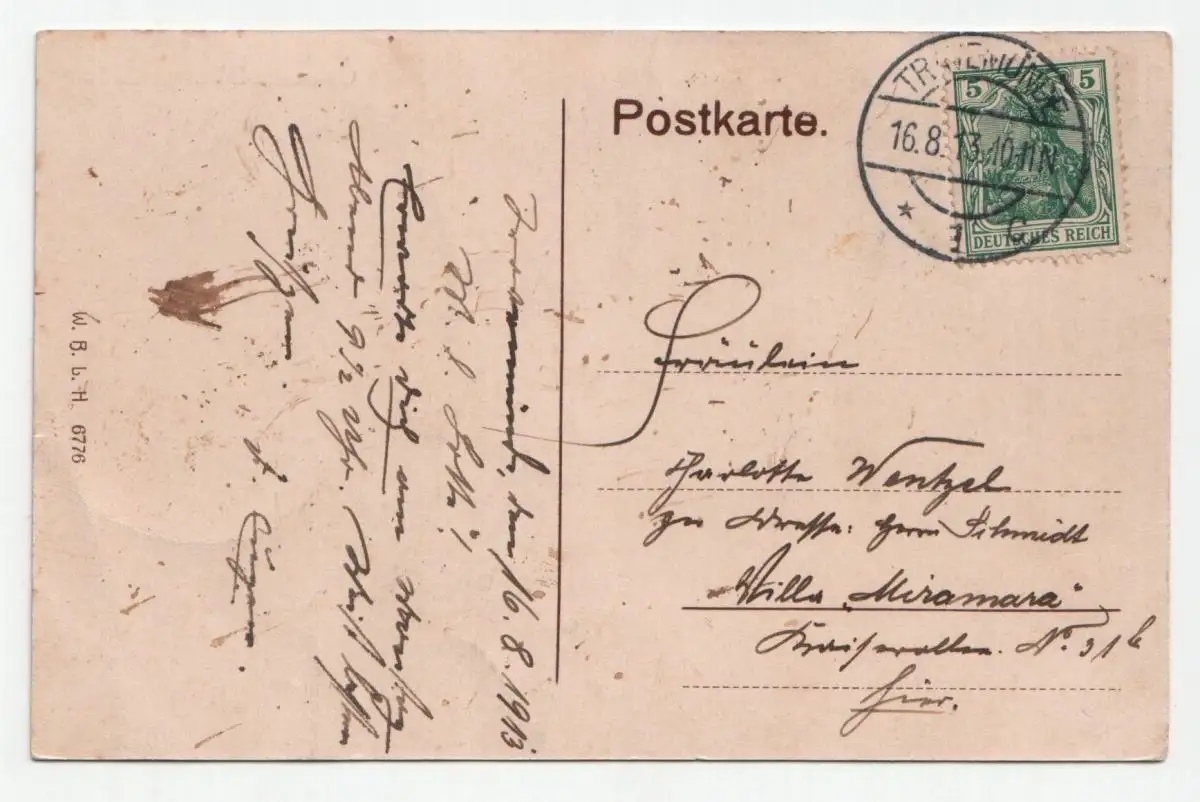 Postkarte.
TRAVEMÜNDE
16.8.13.10-11N
* 1 C
5 5
DEUTSCHES REICH
Fräulein
Charlotte Wentzel
zu Adresse: Herrn Schmidt
Villa „Miramara"
Kaiserallee. No. 31b
hier.
Travemünde, den 16.8.1913
Erwarte dich am
Abend 9 1/2 Uhr.
W. B. L. H. 6776